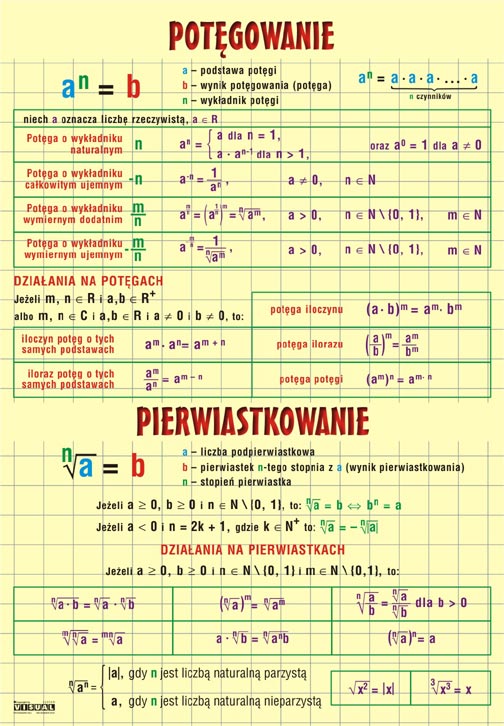 POTĘGOWANIE
aⁿ = b
a – podstawa potęgi
b – wynik potęgowania (potęga)
n – wykładnik potęgi
aⁿ = a · a · a · .... · a
n czynników
niech a oznacza liczbę rzeczywistą, a ∈ R
Potęga o wykładniku naturalnym n
aⁿ = { a dla n = 1,
a · aⁿ⁻¹ dla n > 1,
oraz a⁰ = 1 dla a ≠ 0
Potęga o wykładniku całkowitym ujemnym -n
a⁻ⁿ = 1/aⁿ, a ≠ 0, n ∈ N
Potęga o wykładniku wymiernym dodatnim m/n
a^(m/n) = (a^(1/n))^m = ⁿ√aᵐ, a > 0, n ∈ N \ {0, 1}, m ∈ N
Potęga o wykładniku wymiernym ujemnym -m/n
a^(-m/n) = 1/ⁿ√aᵐ, a > 0, n ∈ N \ {0, 1}, m ∈ N
DZIAŁANIA NA POTĘGACH
Jeżeli m, n ∈ R i a,b ∈ R⁺
albo m, n ∈ C i a,b ∈ R i a ≠ 0 i b ≠ 0, to:
potęga iloczynu (a · b)ᵐ = aᵐ · bᵐ
iloczyn potęg o tych samych podstawach aᵐ · aⁿ = aᵐ⁺ⁿ
potęga ilorazu (a/b)ᵐ = aᵐ/bᵐ
iloraz potęg o tych samych podstawach aᵐ/aⁿ = aᵐ⁻ⁿ
potęga potęgi (aᵐ)ⁿ = a^(m · n)
PIERWIASTKOWANIE
ⁿ√a = b
a – liczba podpierwiastkowa
b – pierwiastek n-tego stopnia z a (wynik pierwiastkowania)
n – stopień pierwiastka
Jeżeli a ≥ 0, b ≥ 0 i n ∈ N \ {0, 1}, to: ⁿ√a = b ⇔ bⁿ = a
Jeżeli a < 0 i n = 2k + 1, gdzie k ∈ N⁺ to: ⁿ√a = – ⁿ√|a|
DZIAŁANIA NA PIERWIASTKACH
Jeżeli a ≥ 0, b ≥ 0 i n ∈ N \ {0, 1} i m ∈ N \ {0,1}, to:
ⁿ√(a · b) = ⁿ√a · ⁿ√b
(ⁿ√a)ᵐ = ⁿ√aᵐ
ⁿ√(a/b) = ⁿ√a/ⁿ√b dla b > 0
ᵐ√(ⁿ√a) = ᵐⁿ√a
a · ⁿ√b = ⁿ√(aⁿb)
(ⁿ√a)ⁿ = a
ⁿ√aⁿ = { |a|, gdy n jest liczbą naturalną parzystą
a, gdy n jest liczbą naturalną nieparzystą
√x² = |x|
³√x³ = x
VISUAL